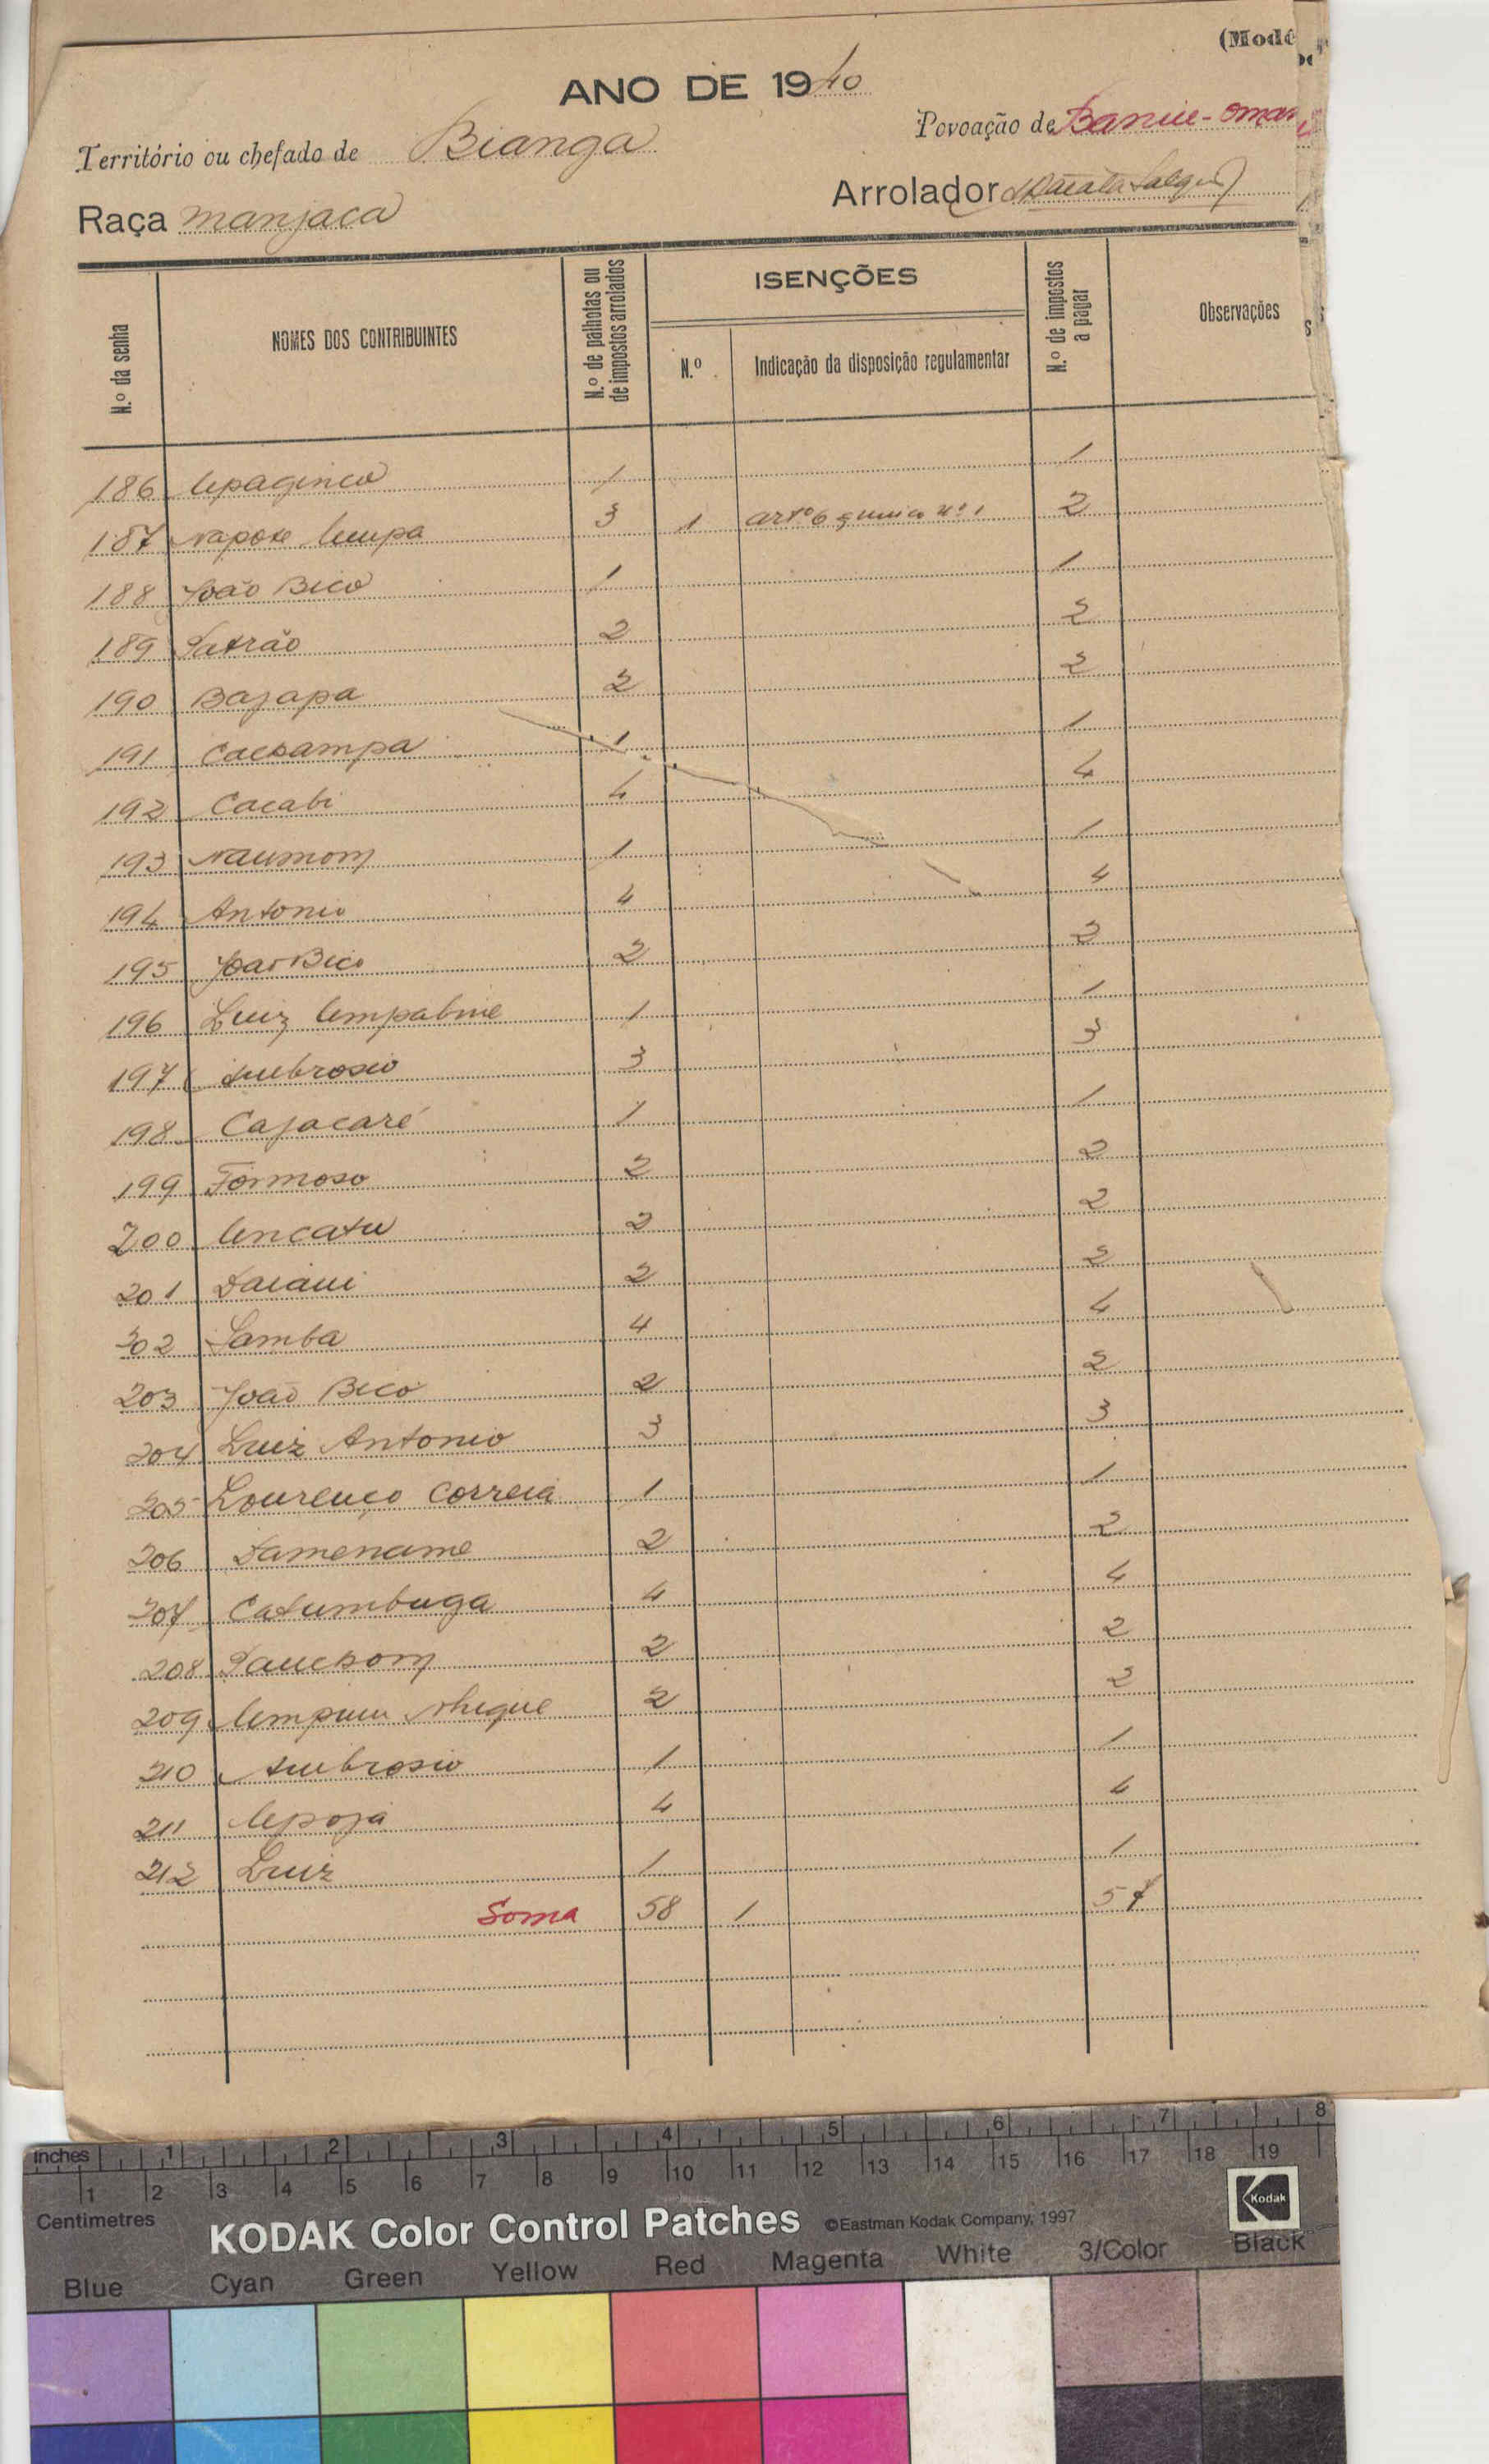 (Modé
ANO DE 1940
Povoação de Baniu-oman
Território ou chefado de Bianga
Arrolador
Raça manjaca
N.º da senha
NOMES DOS CONTRIBUINTES
N.º de palhotas ou de impostos arrolados
ISENÇÕES
N.º
Indicação da disposição regulamentar
N.º de impostos a pagar
Observações
186 Upaginca 1 1
187 Napote Umpa 3 1 artº 6 § unico nº 1 2
188 João Bico 1 1
189 Patrão 2 2
190 Bajapa 2 2
191 Cacsampa 1 1
192 Cacabi 4 4
193 Naumom 1 1
194 Antonio 4 4
195 João Bico 2 2
196 Luiz Umpabine 1 1
197 Ambrosio 3 3
198 Cajacaré 1 1
199 Formoso 2 2
200 Uncatu 2 2
201 2 2
202 Samba 4 4
203 João Bico 2 2
204 Luiz Antonio 3 3
205 Lourenço Correia 1 1
206 Damename 2 2
207 Catumbuga 4 4
208 Paucsom 2 2
209 2 2
210 Ambrosio 1 1
211 Upoja 4 4
212 Luiz 1 1
Soma 58 1 57
inches 1 2 3 4 5 6 7 8
1 2 3 4 5 6 7 8 9 10 11 12 13 14 15 16 17 18 19
Centimetres
KODAK Color Control Patches ©Eastman Kodak Company, 1997
Kodak
Blue Cyan Green Yellow Red Magenta White 3/Color Black